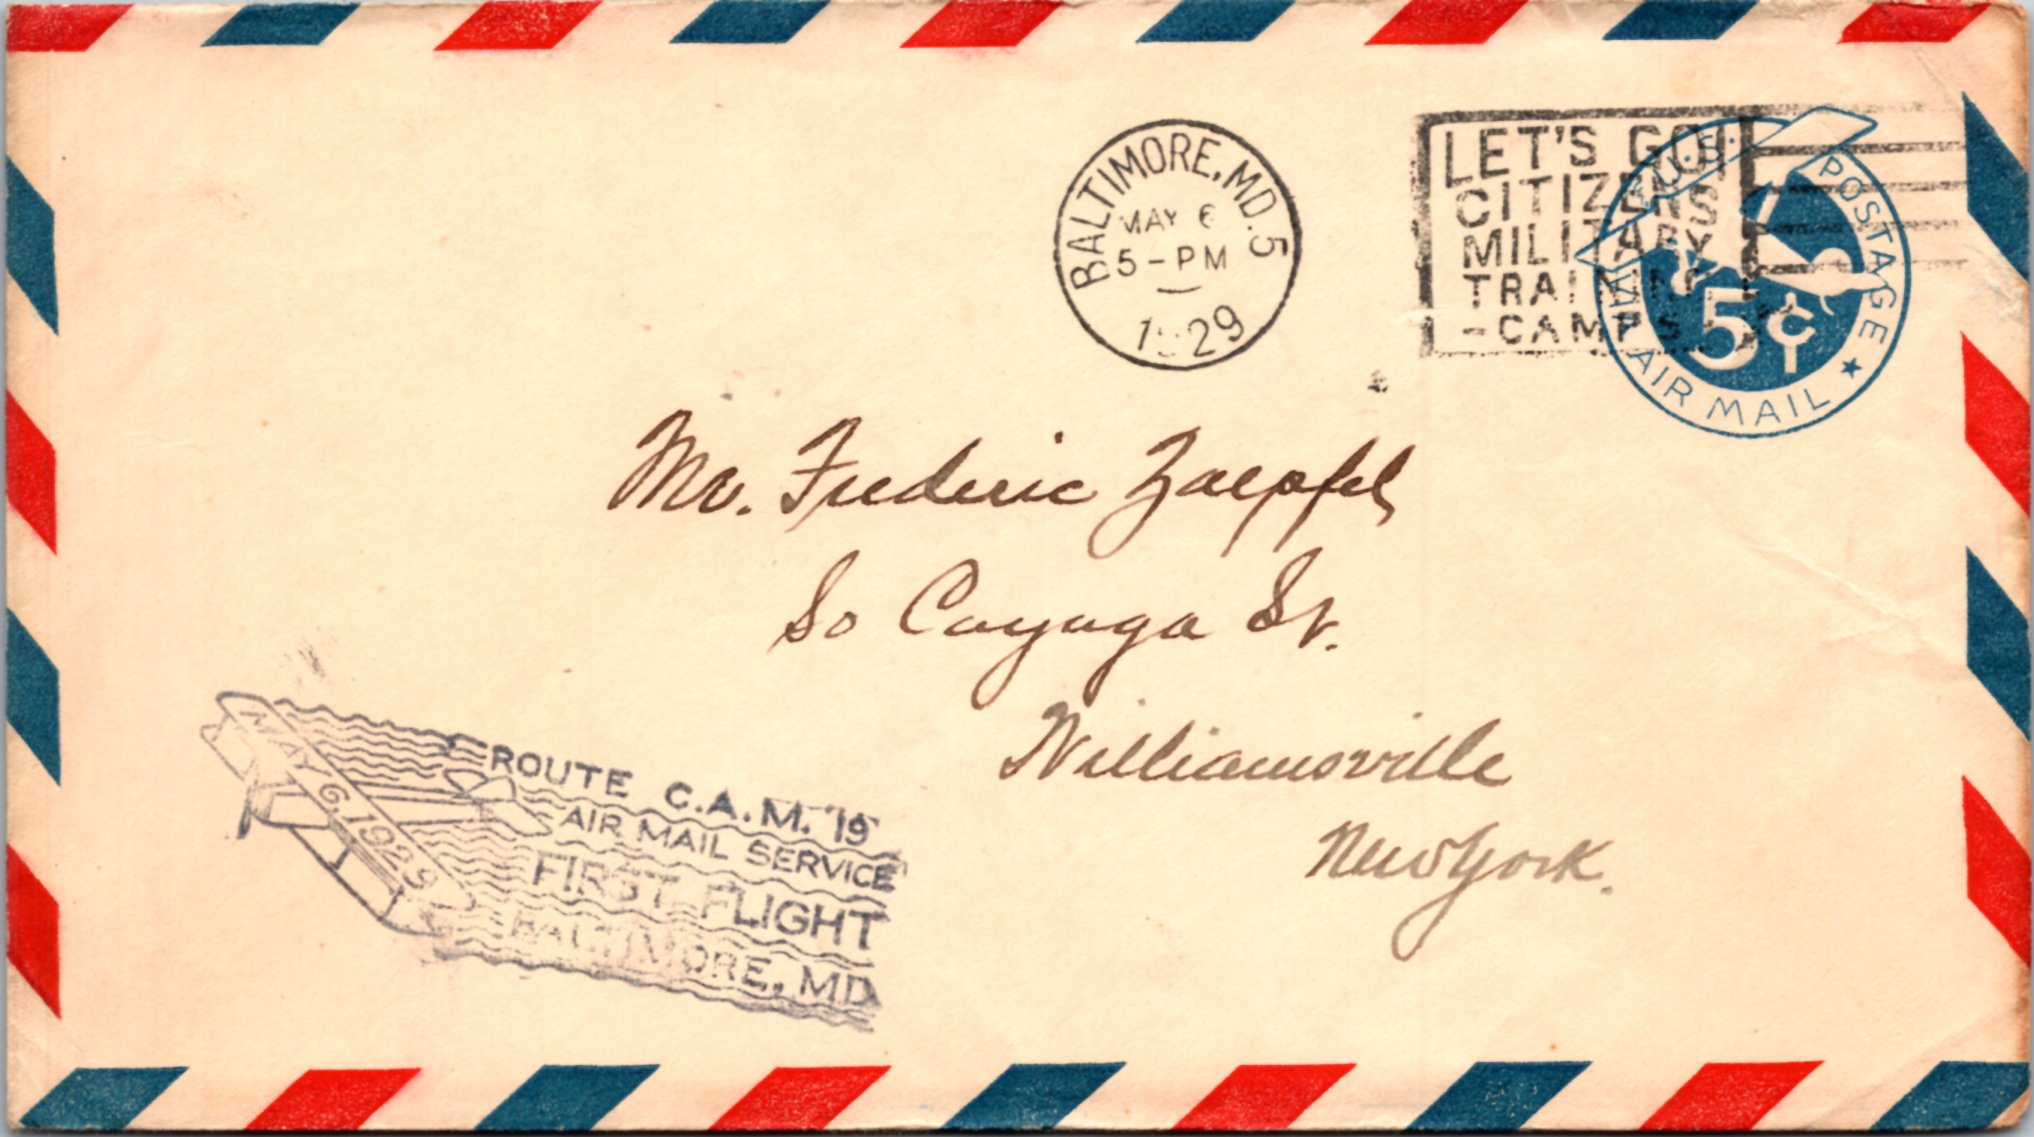 BALTIMORE, MD. 5
MAY 6
5-PM
1929
LET'S GO!
CITIZENS
MILITARY
TRAINING
-CAMPS
U.S. POSTAGE
VIA AIR MAIL
5¢
Mr. Frederic Zaepfel
So Cayuga St.
Williamsville
New York.
MAY 6, 1929
ROUTE C.A.M. 19
AIR MAIL SERVICE
FIRST FLIGHT
BALTIMORE, MD